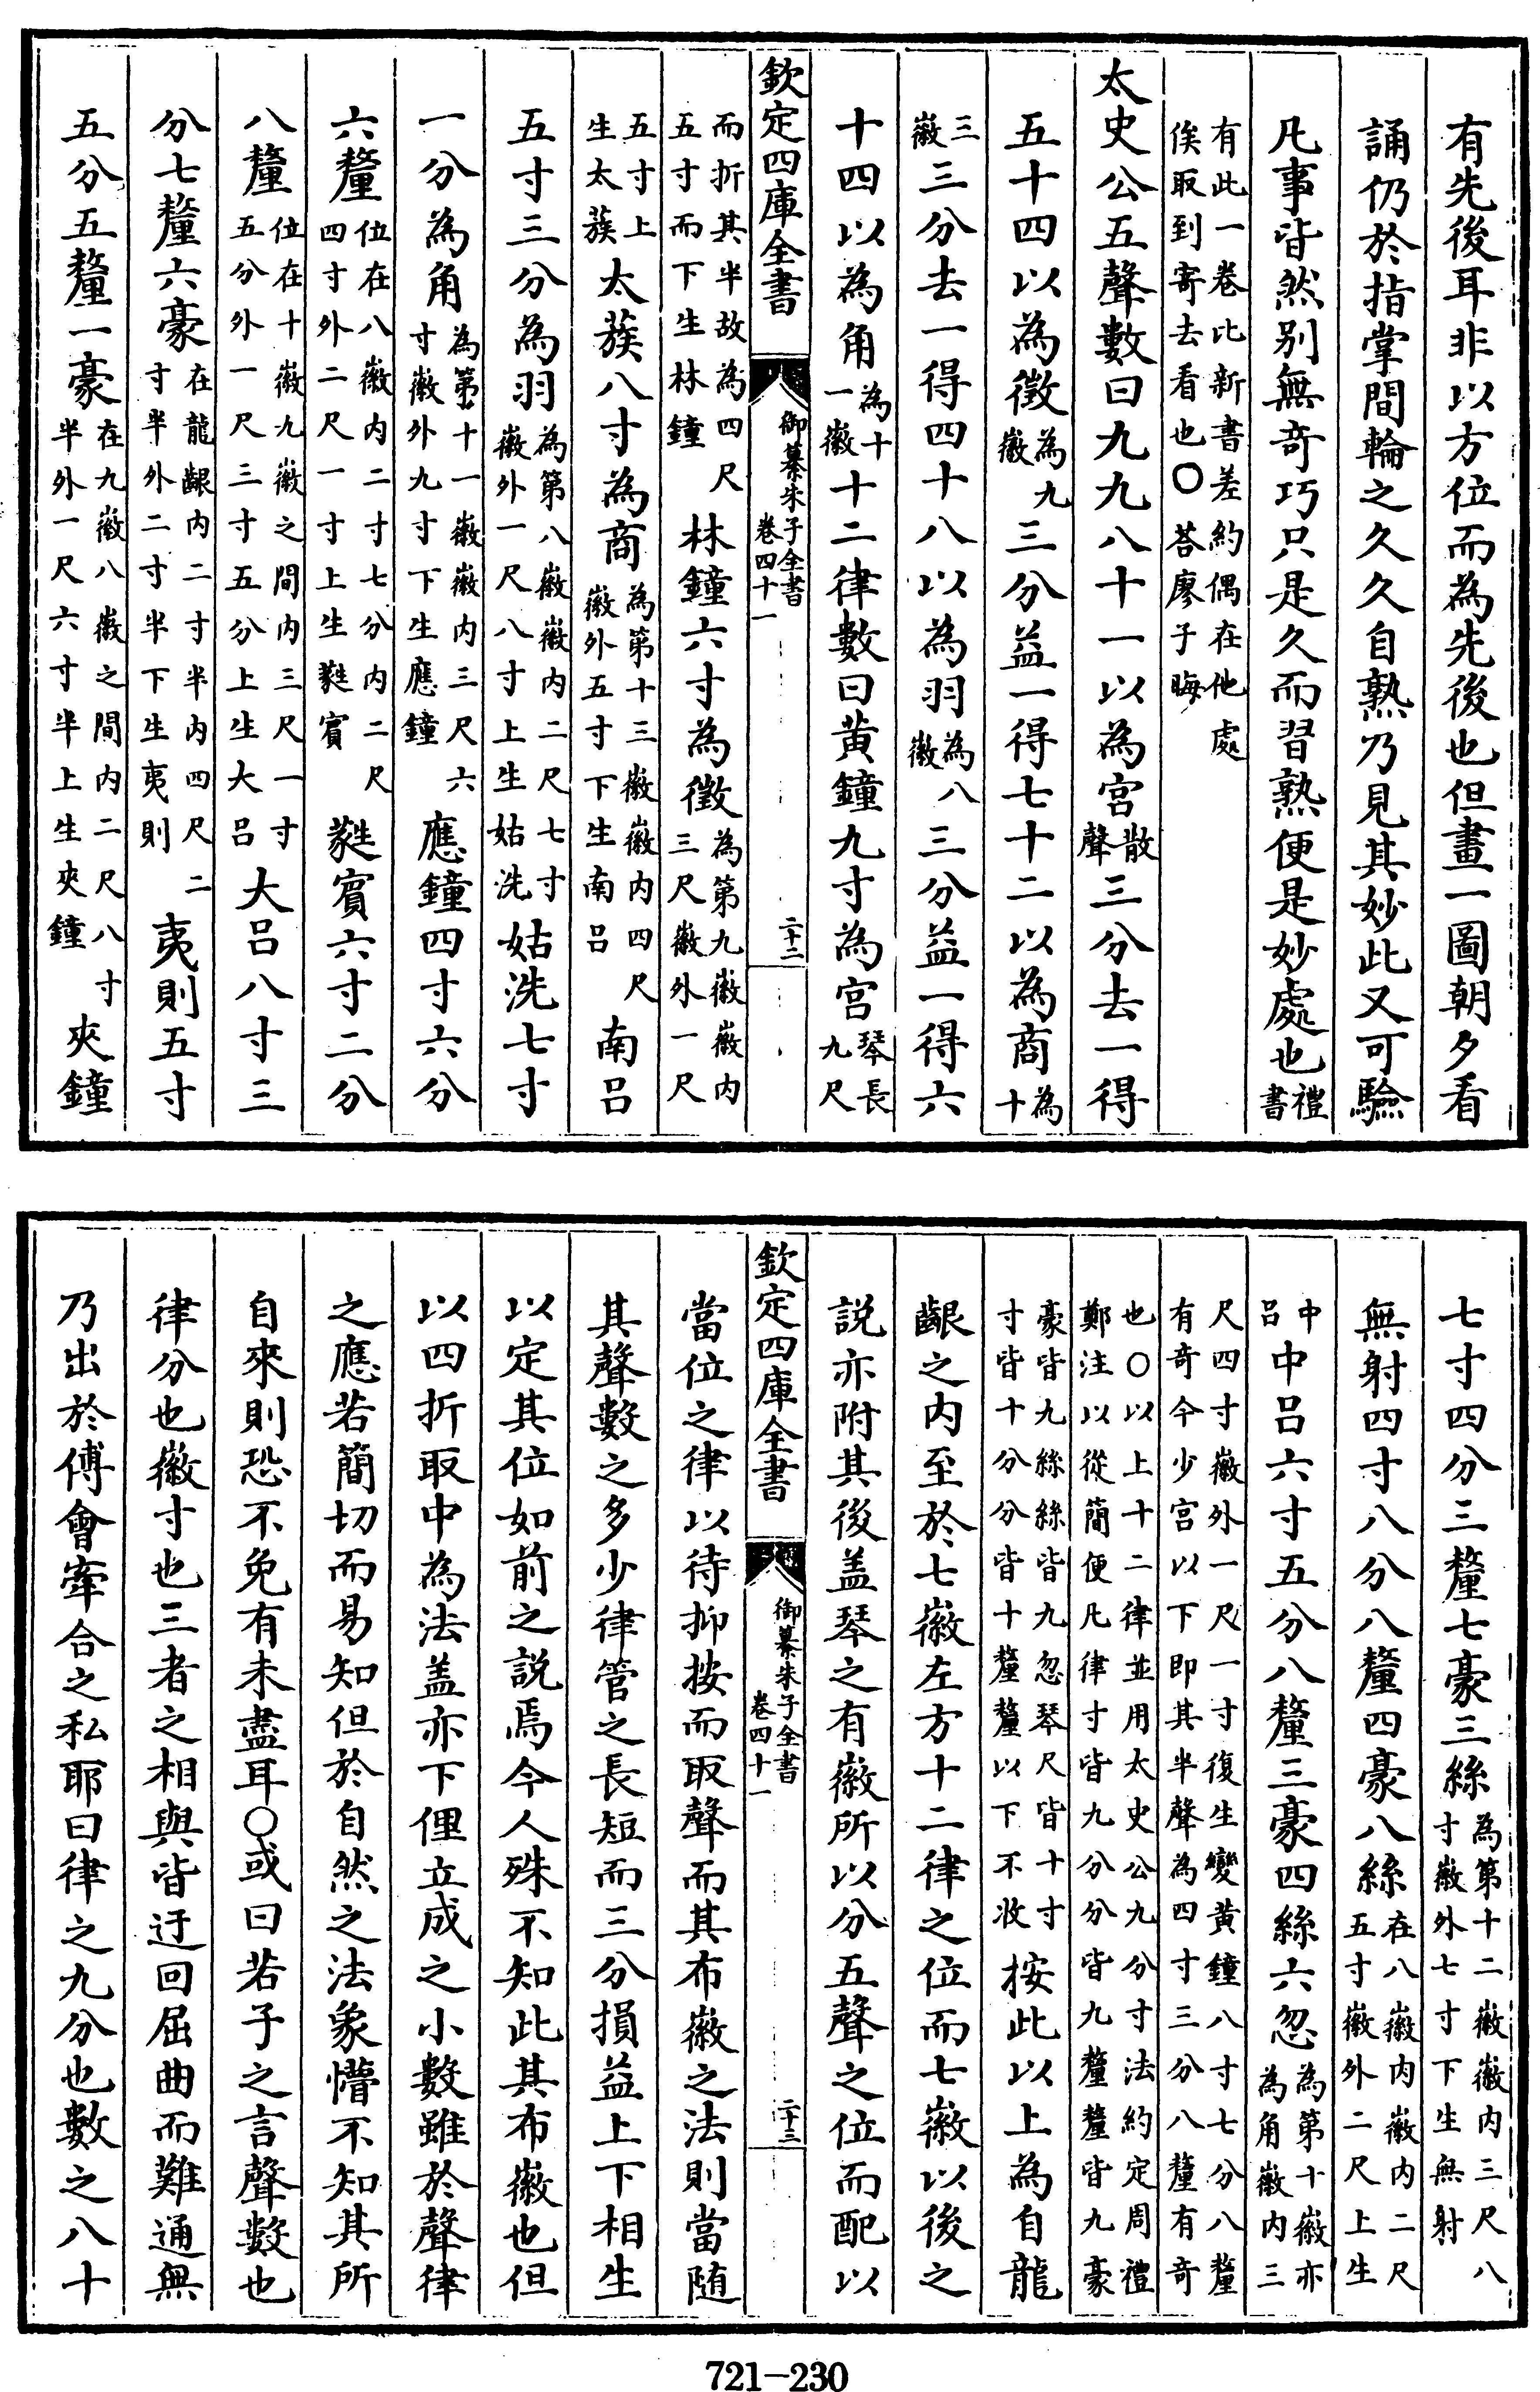 有先後耳非以方位而為先後也但畫一圖朝夕看
誦仍於指掌間輪之久久自熟乃見其妙此又可驗
凡事皆然别無奇巧只是久而習熟便是妙處也禮書
有此一卷比新書差約偶在他處
俟取到寄去看也〇荅廖子晦
太史公五聲數曰九九八十一以為宫散聲三分去一得
五十四以為徵為九徽三分益一得七十二以為商為十
三徽三分去一得四十八以為羽為八徽三分益一得六
十四以為角為十一徽十二律數曰黄鐘九寸為宫琴長九尺
欽定四庫全書
御纂朱子全書
卷四十一
二十二
而折其半故為四尺
五寸而下生林鐘
林鐘六寸為徵為第九徽徽内三尺徽外一尺
五寸上
生太蔟
太蔟八寸為商為第十三徽徽内四尺徽外五寸下生南吕南吕
五寸三分為羽為第八徽徽内二尺七寸徽外一尺八寸上生姑洗姑洗七寸
一分為角為第十一徽徽内三尺六寸徽外九寸下生應鐘應鐘四寸六分
六釐位在八徽内二寸七分内二尺四寸外二尺一寸上生蕤賓蕤賓六寸二分
八釐位在十徽九徽之間内三尺一寸五分外一尺三寸五分上生大吕大吕八寸三
分七釐六豪在龍齦内二寸半内四尺二寸半外二寸半下生夷則夷則五寸
五分五釐一豪在九徽八徽之間内二尺八寸半外一尺六寸半上生夾鐘夾鐘
七寸四分三釐七豪三絲為第十二徽徽内三尺八寸徽外七寸下生無射
無射四寸八分八釐四豪八絲在八徽内徽内二尺五寸徽外二尺上生
中吕中吕六寸五分八釐三豪四絲六忽為第十徽亦為角徽内三
尺四寸徽外一尺一寸復生變黄鐘八寸七分八釐
有奇今少宫以下即其半聲為四寸三分八釐有奇
也〇以上十二律並用太史公九分寸法約定周禮
鄭注以從簡便凡律寸皆九分分皆九釐釐皆九豪
豪皆九絲絲皆九忽琴尺皆十寸
寸皆十分分皆十釐釐以下不收
按此以上為自龍
齦之内至於七徽左方十二律之位而七徽以後之
説亦附其後盖琴之有徽所以分五聲之位而配以
欽定四庫全書
御纂朱子全書
卷四十一
二十三
當位之律以待抑按而取聲而其布徽之法則當随
其聲數之多少律管之長短而三分損益上下相生
以定其位如前之説焉今人殊不知此其布徽也但
以四折取中為法盖亦下俚立成之小數雖於聲律
之應若簡切而易知但於自然之法象懵不知其所
自來則恐不免有未盡耳〇或曰若子之言聲數也
律分也徽寸也三者之相與皆迂回屈曲而難通無
乃出於傅會牽合之私耶曰律之九分也數之八十
721-230